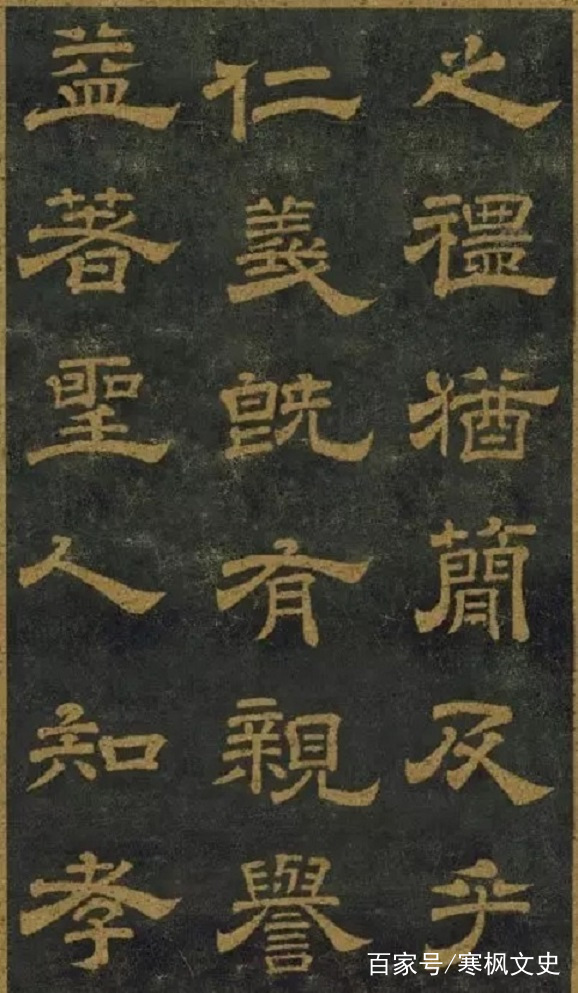 之禮猶簡及乎
仁義既有親譽
益著聖人知孝
百家号/寒枫文史